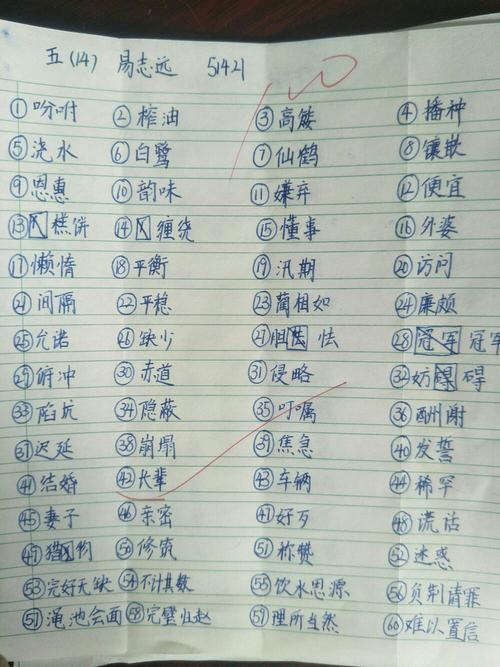 五(14) 易志远 51421 100
①吩咐 ②榨油 ③高矮 ④播种
⑤浇水 ⑥白鹭 ⑦仙鹤 ⑧镶嵌
⑨恩惠 ⑩韵味 ⑪嫌弃 ⑫便宜
⑬糕饼 ⑭缠绕 ⑮懂事 ⑯外婆
⑰懒惰 ⑱平衡 ⑲汛期 ⑳访问
㉑间隔 ㉒平稳 ㉓蔺相如 ㉔廉颇
㉕允诺 ㉖缺少 ㉗胆怯 ㉘冠军
㉙俯冲 ㉚赤道 ㉛侵略 ㉜妨碍
㉝陷坑 ㉞隐蔽 ㉟叮嘱 ㊱酬谢
㊲迟延 ㊳崩塌 ㊴焦急 ㊵发誓
㊶结婚 ㊷长辈 ㊸车辆 ㊹稀罕
㊺妻子 ㊻亲密 ㊼好歹 ㊽谎话
㊾猎物 ㊿修筑 51称赞 52迷惑
53完好无缺 54不计其数 55饮水思源 56负荆请罪
57渑池会面 58完璧归赵 59理所当然 60难以置信